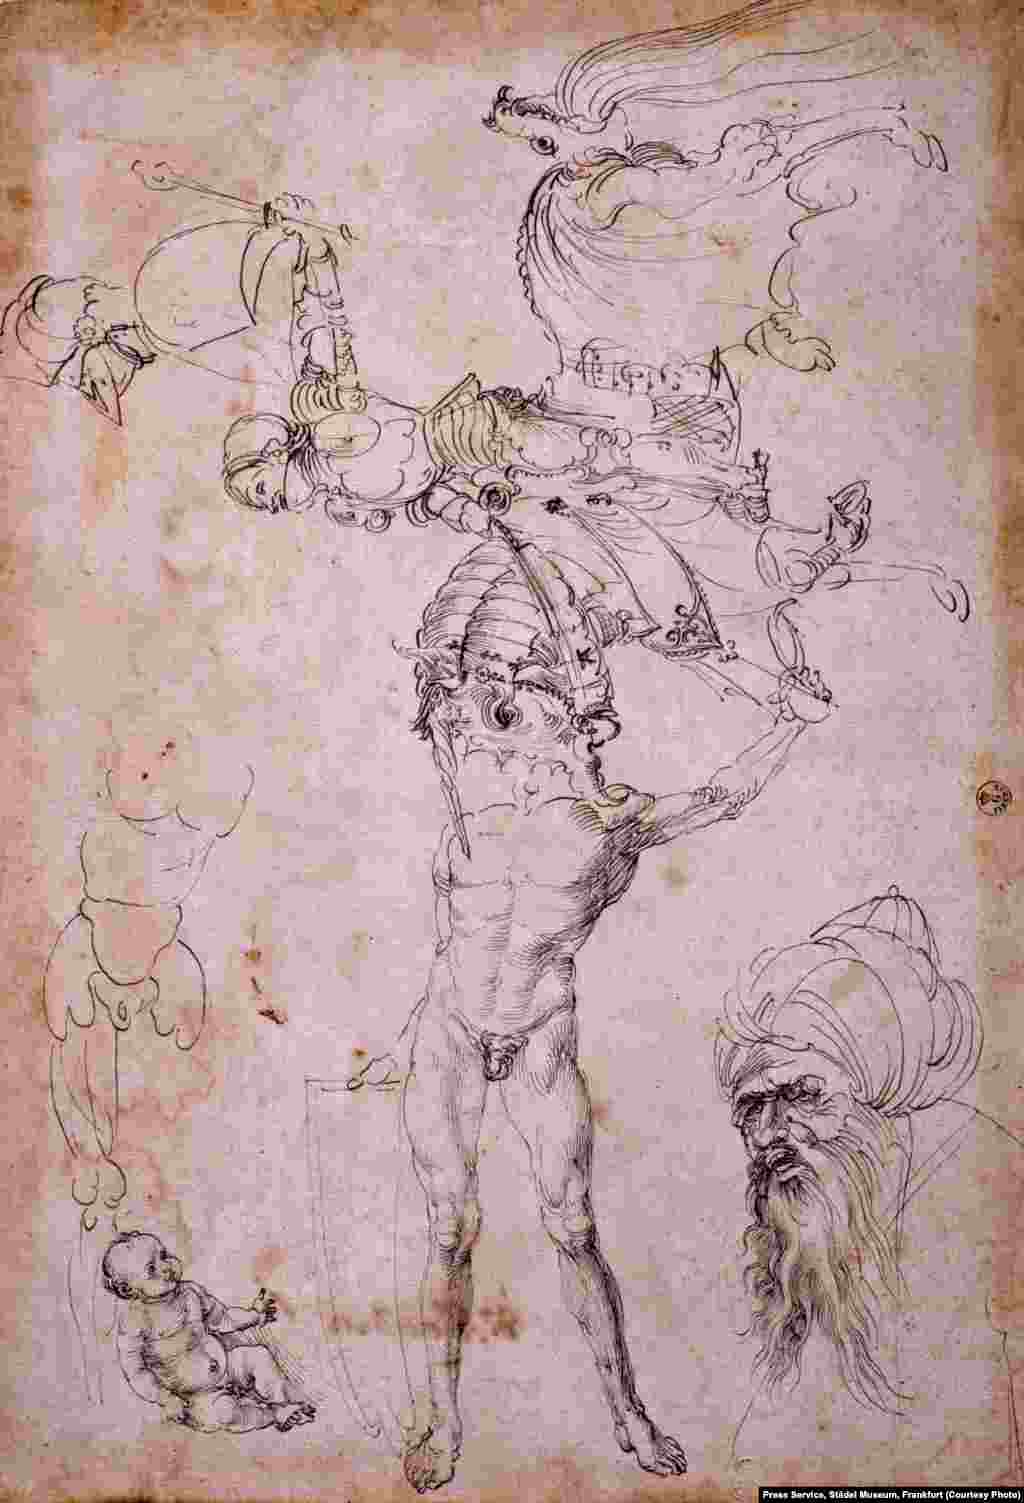 Press Service, Städel Museum, Frankfurt (Courtesy Photo)